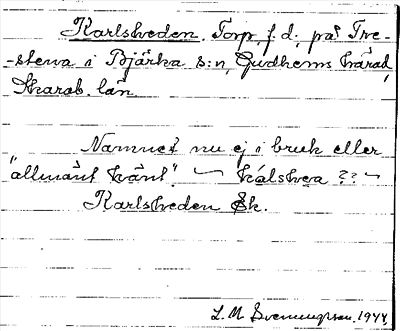 Karlsheden. Torp, f. d., på Tre-
-stena i Bjärka s:n, Gudhems härad,
Skarab. län
Namnet nu ej i bruk eller
"allmänt känt". — kálshea ?? —
Karlsheden Sk.
L. M. Svenungsson. 1944